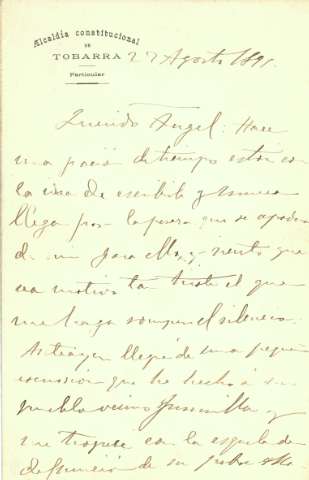 Alcaldía constitucional
DE
TOBARRA
Particular
27 Agosto 1891.
Querido Angel: Hace
una porción de tiempo estoy con
la idea de escribirte y nunca
llega por la pereza que se apodera
de mi para ello, y siento que
sea motivo tan triste el que
me haga romper el silencio.
Anteayer llegué de una pequeña
escursión que he hecho á un
pueblo vecino y
me tropecé con la esquela de
defunción de su pobre